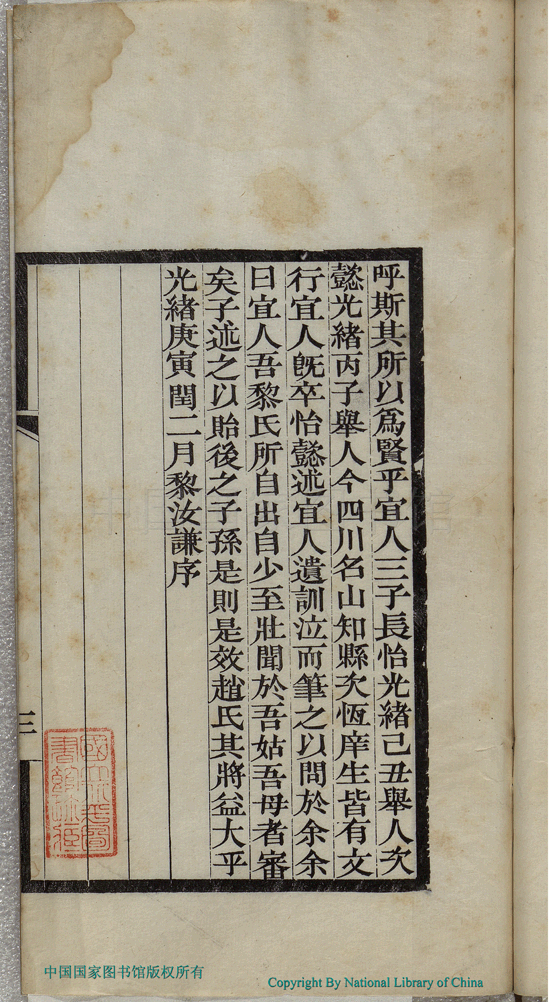 呼斯其所以爲賢乎宜人三子長怡光緒己丑舉人次
懿光緒丙子舉人今四川名山知縣次恆庠生皆有文
行宜人旣卒怡懿述宜人遺訓泣而筆之以問於余余
曰宜人吾黎氏所自出自少至壯聞於吾姑吾母者審
矣子述之以貽後之子孫是則是效趙氏其將益大乎
光緒庚寅閏二月黎汝謙序
三
中国国家图书馆版权所有
Copyright By National Library of China